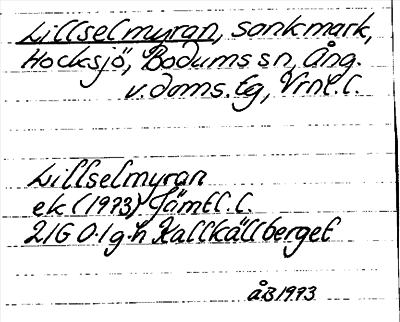 Lillselmyran, sankmark,
Hocksjö, Bodums sn, Ång.
v.doms. Eg, Vrnl. l.
Lillselmyran
ek (1973) Jämtl. l.
21G 0-1 g-h Kallkällberget
åB 1973